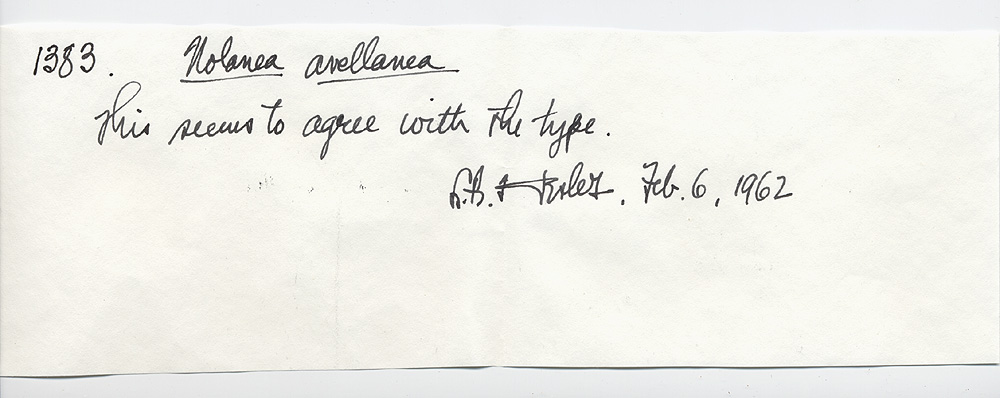 1383. Nolanea avellanea
This seems to agree with the type.
Feb. 6, 1962